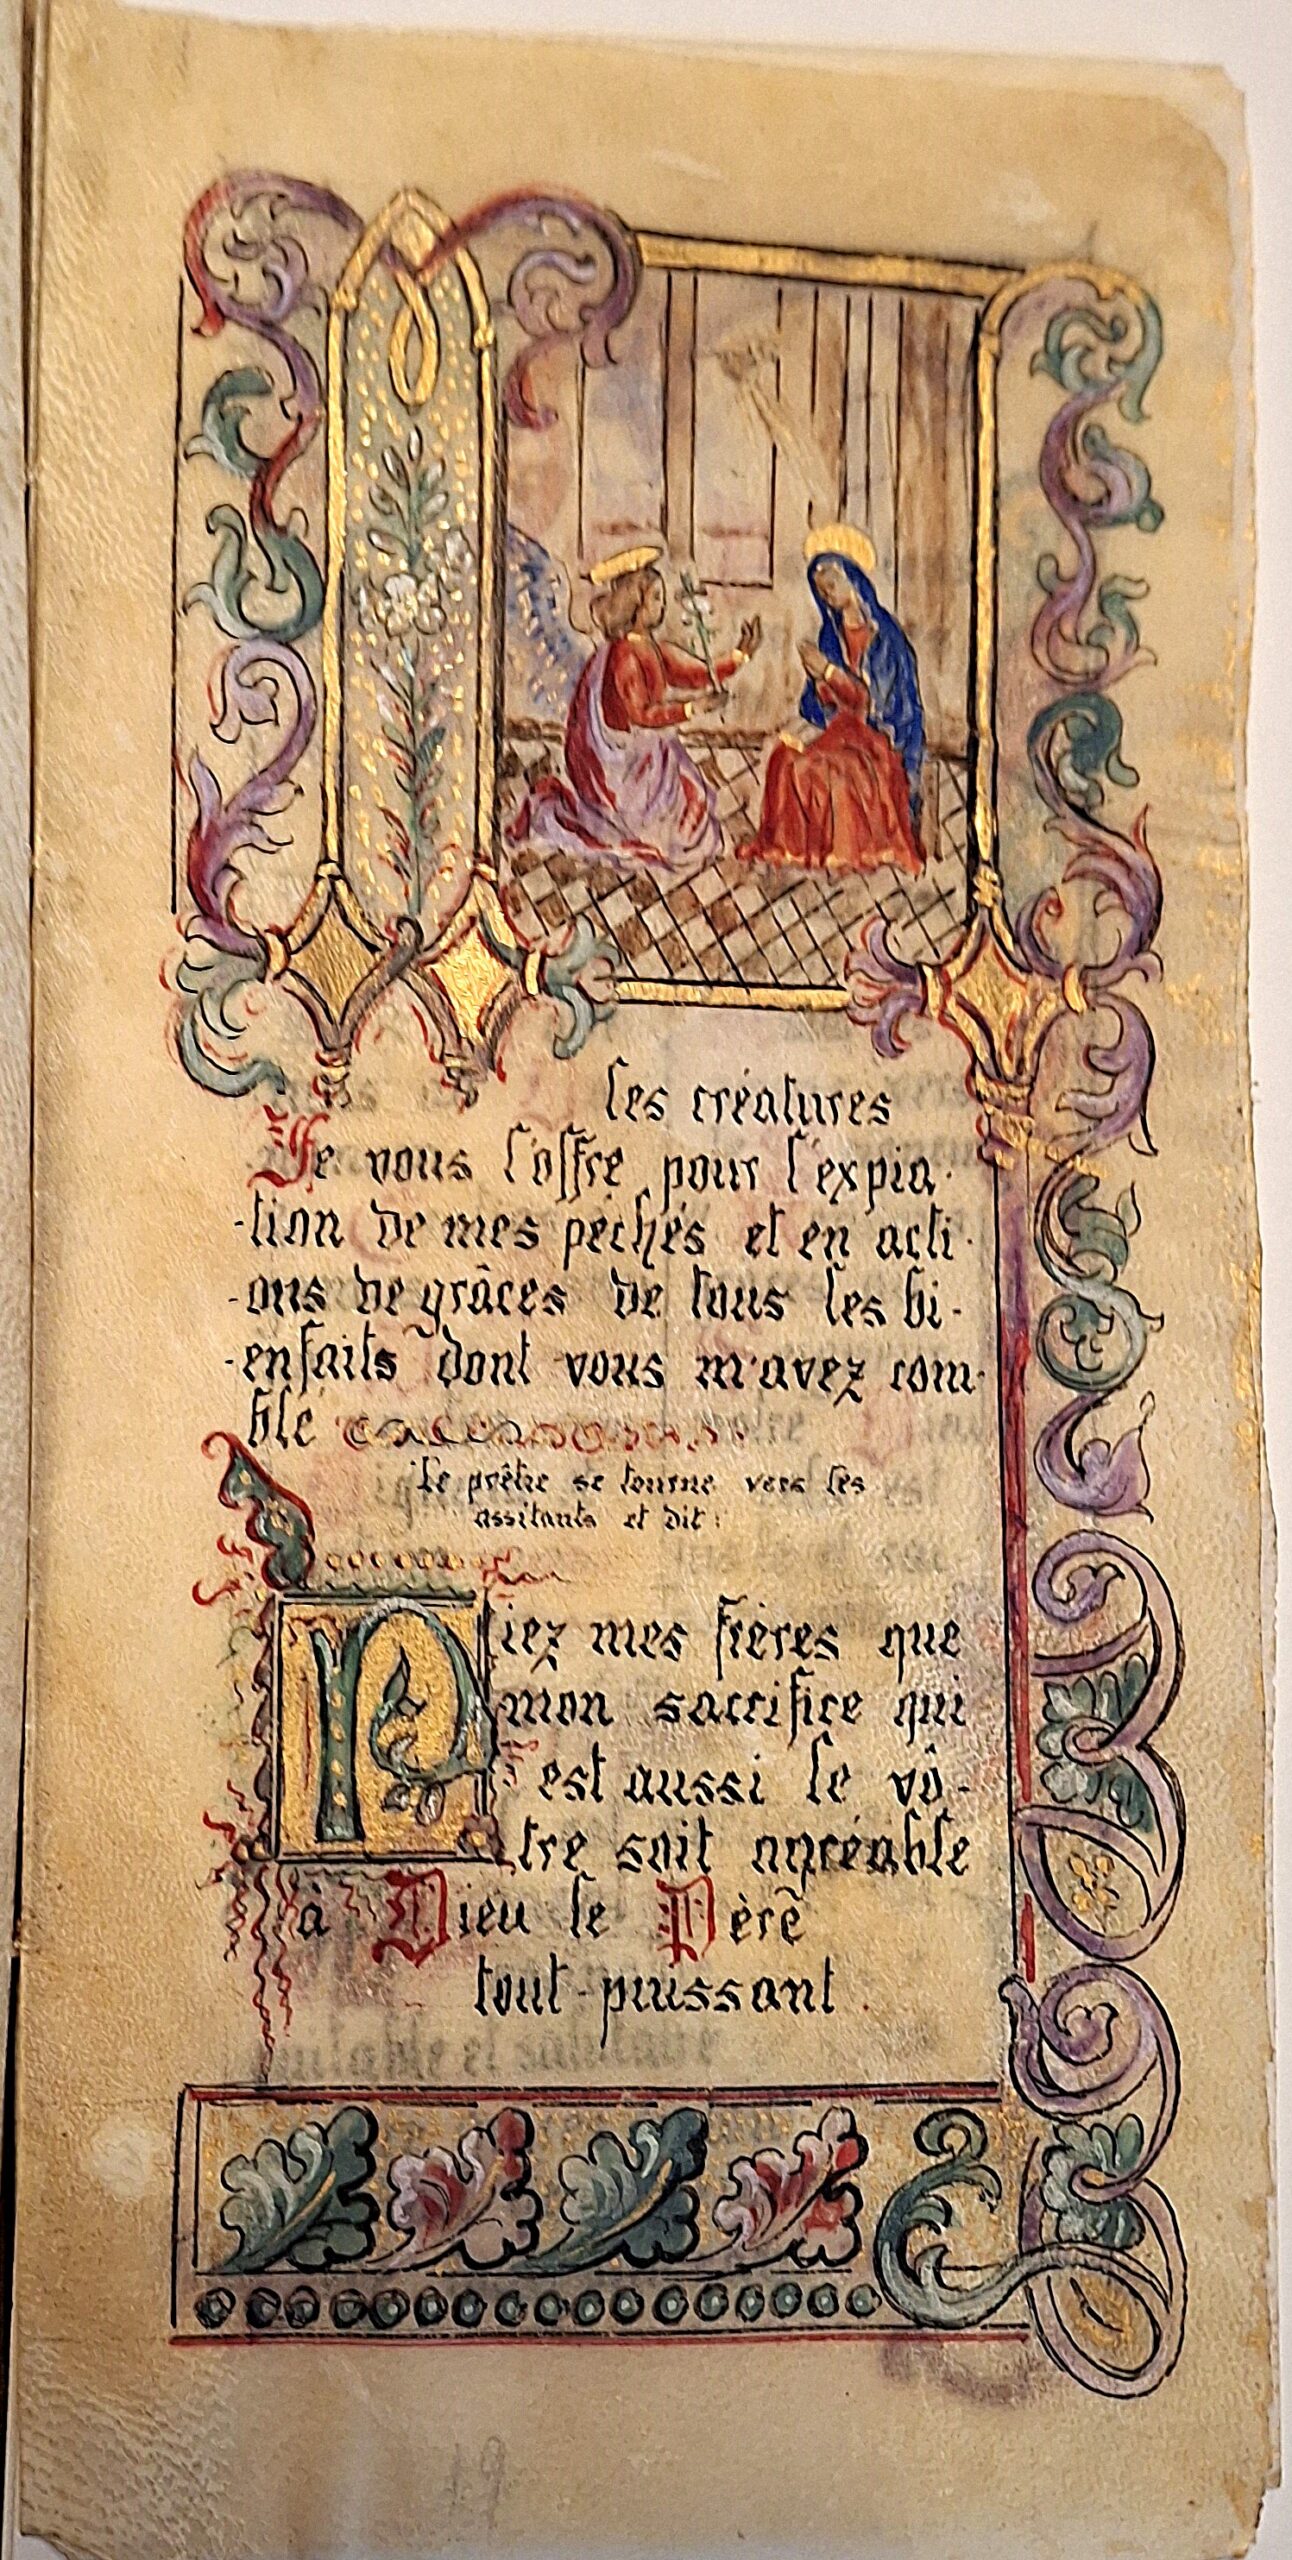 les créatures
Je vous l'offre pour l'expia-
-tion de mes péchés et en acti-
-ons de grâces de tous les bi-
-enfaits dont vous m'avez com-
blé
Le prêtre se tourne vers les
assitants et dit:
Priez mes frères que
mon sacrifice qui
est aussi le vô-
tre soit agréable
à Dieu le Père
tout-puissant